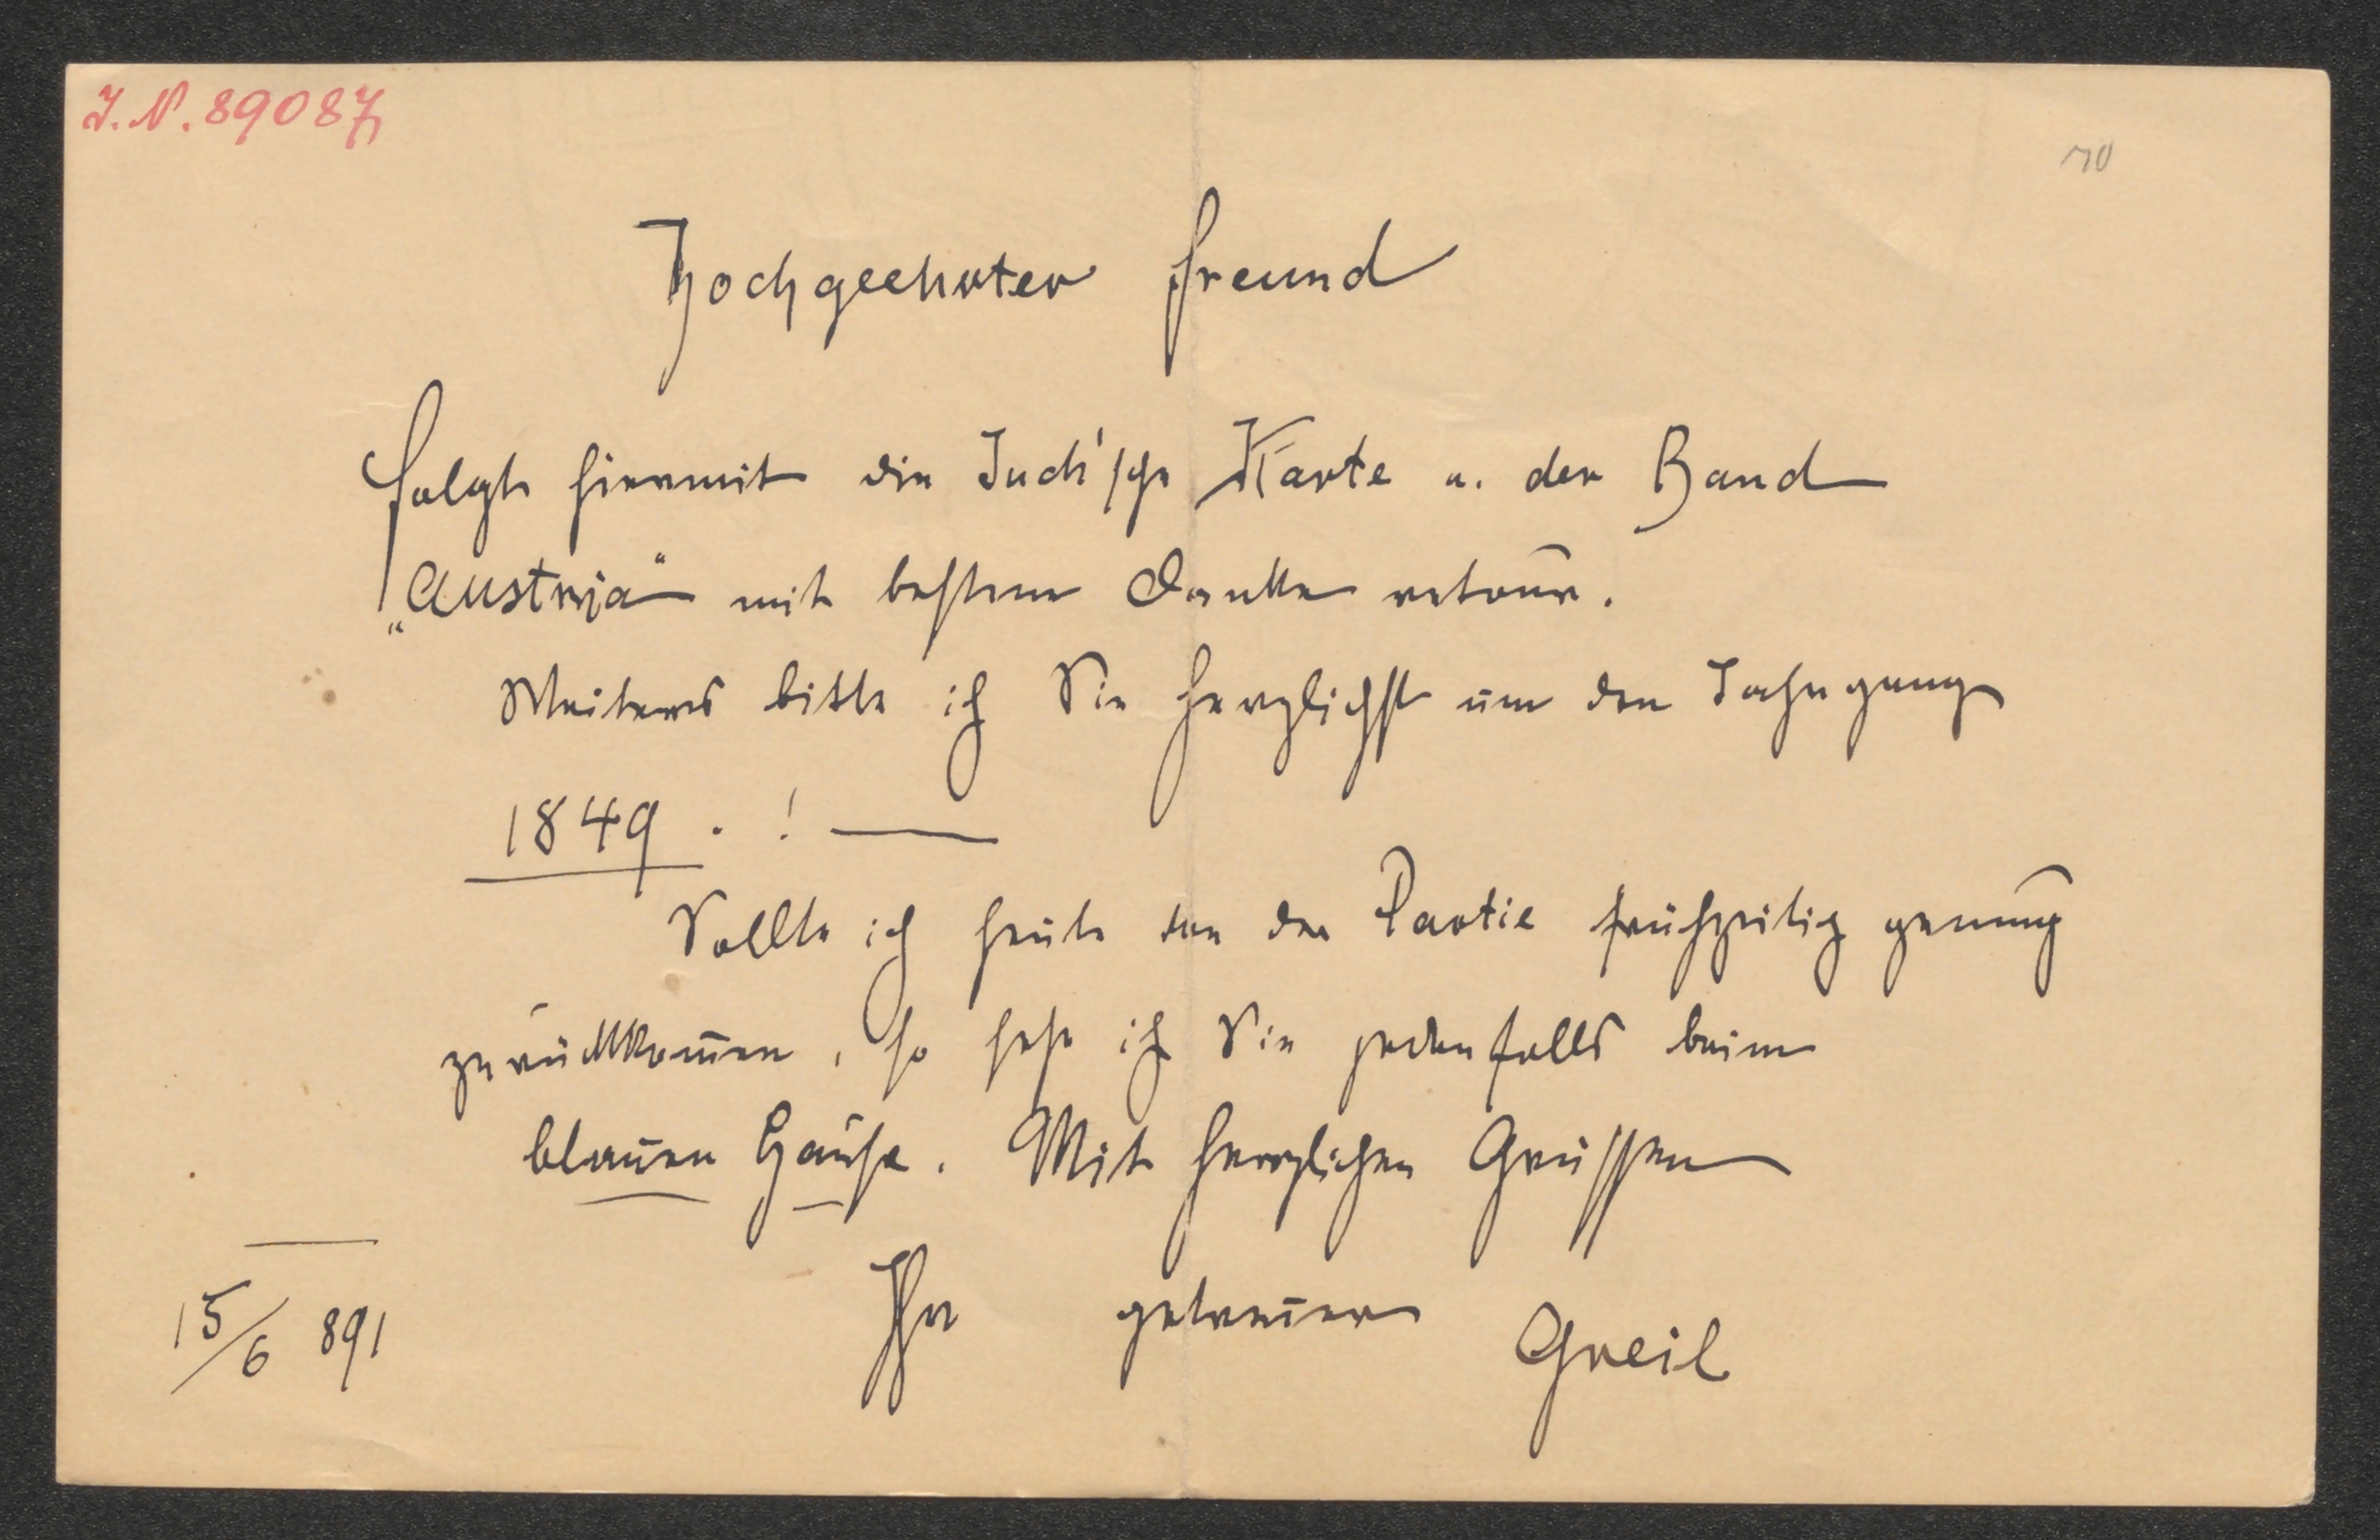 I. N. 89087
10
Hochgeehrter Freund
folgt hiermit die Juch'sche Karte u. der Band
„Austria“ mit bestem Danke retour.
Weiters bitte ich Sie herzlichst um den Jahrgang
1849 . ! —
Sollte ich heute von der Partie frühzeitig genug
zurückkom̅en, so sehe ich Sie jedenfalls beim
blauen Hause. Mit herzlichen Grüssen
Ihr getreuer Greil
15/6 891